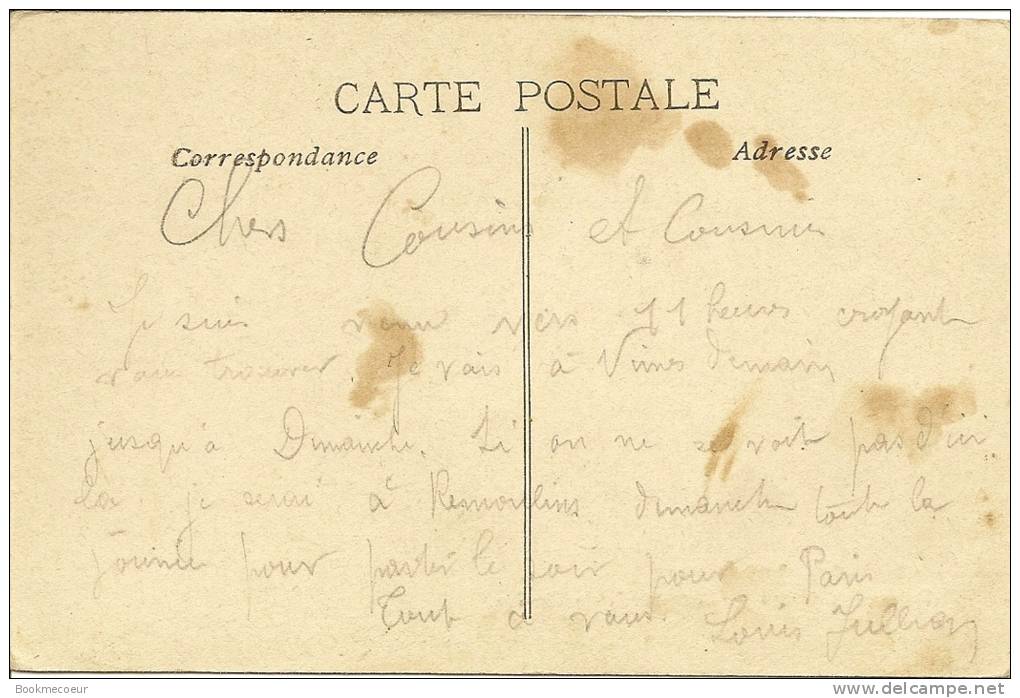 CARTE POSTALE
Correspondance
Adresse
Chers Cousins et Cousines
Je suis venu vers 11 heures croyant
vous trouver. Je vais à Nimes demain,
jusqu'à Dimanche. Si on ne se voit pas d'ici
là je serai à Remoulins dimanche toute la
journée pour partir le soir pour Paris
Tout à vous Louis Jullian
Bookmecoeur
delcampe.net